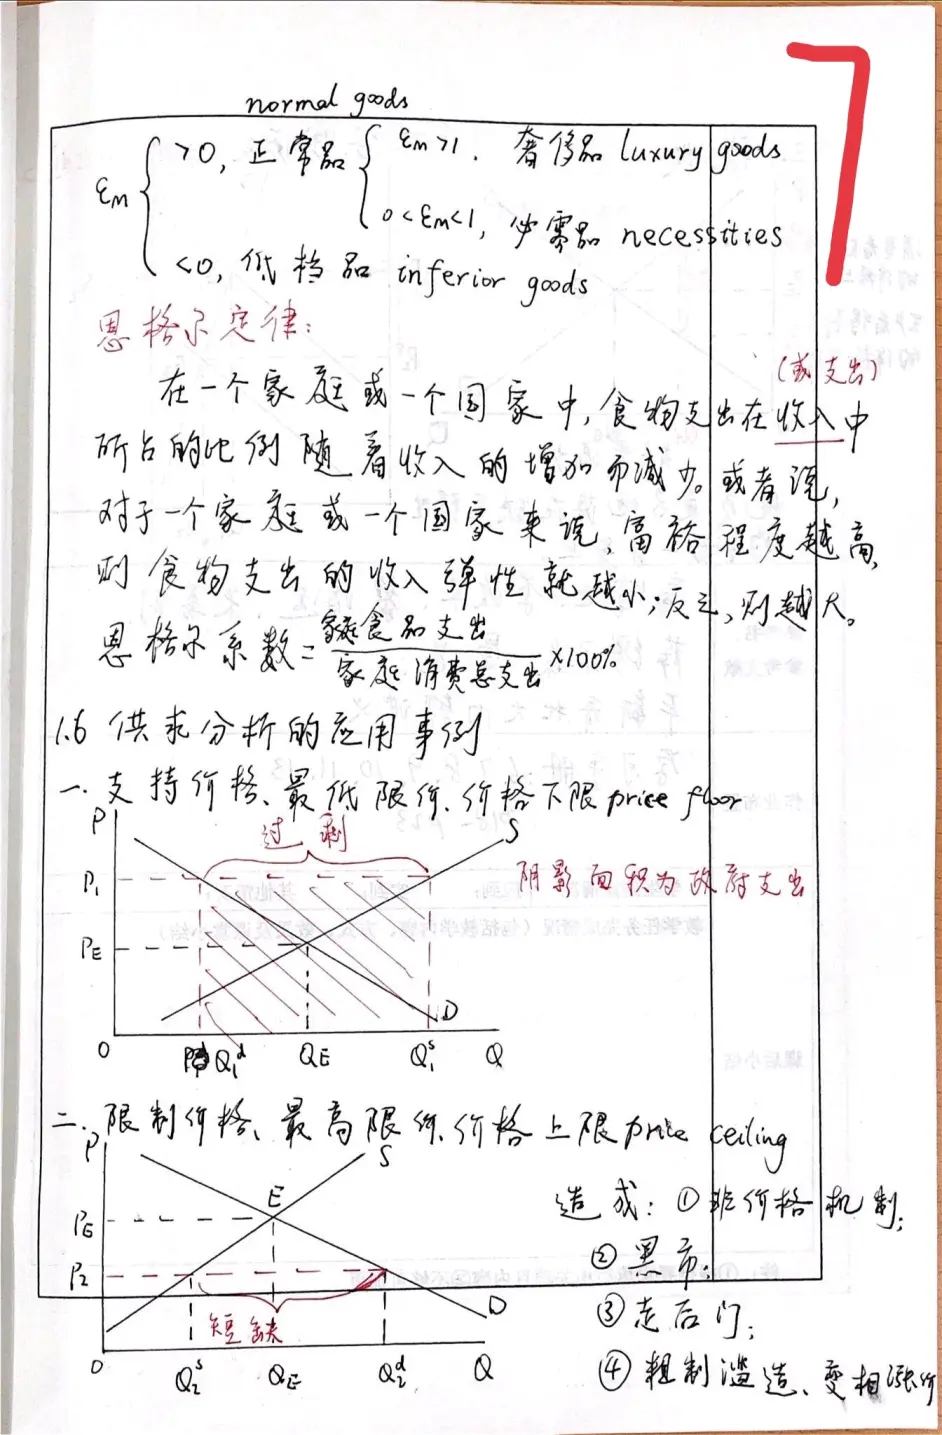 7
normal goods
εM { >0, 正常品 { εM>1. 奢侈品 luxury goods
0<εM<1, 必需品 necessities
<0, 低档品 inferior goods
恩格尔定律:
(或支出)
在一个家庭或一个国家中,食物支出在收入中
所占的比例随着收入的增加而减少。或者说,
对于一个家庭或一个国家来说,富裕程度越高,
则食物支出的收入弹性就越小;反之,则越大。
恩格尔系数=家庭食品支出/家庭消费总支出×100%
1.6 供求分析的应用事例
一.支持价格、最低限价、价格下限price floor
P
过剩
S
P1
阴影面积为政府支出
PE
D
O Q1d QE Q1s Q
二.限制价格、最高限价、价格上限price ceiling
P
S
E
PE
造成:①非价格机制;
②黑市;
P2
③走后门;
短缺
D
O Q2s QE Q2d Q
④粗制滥造、变相涨价